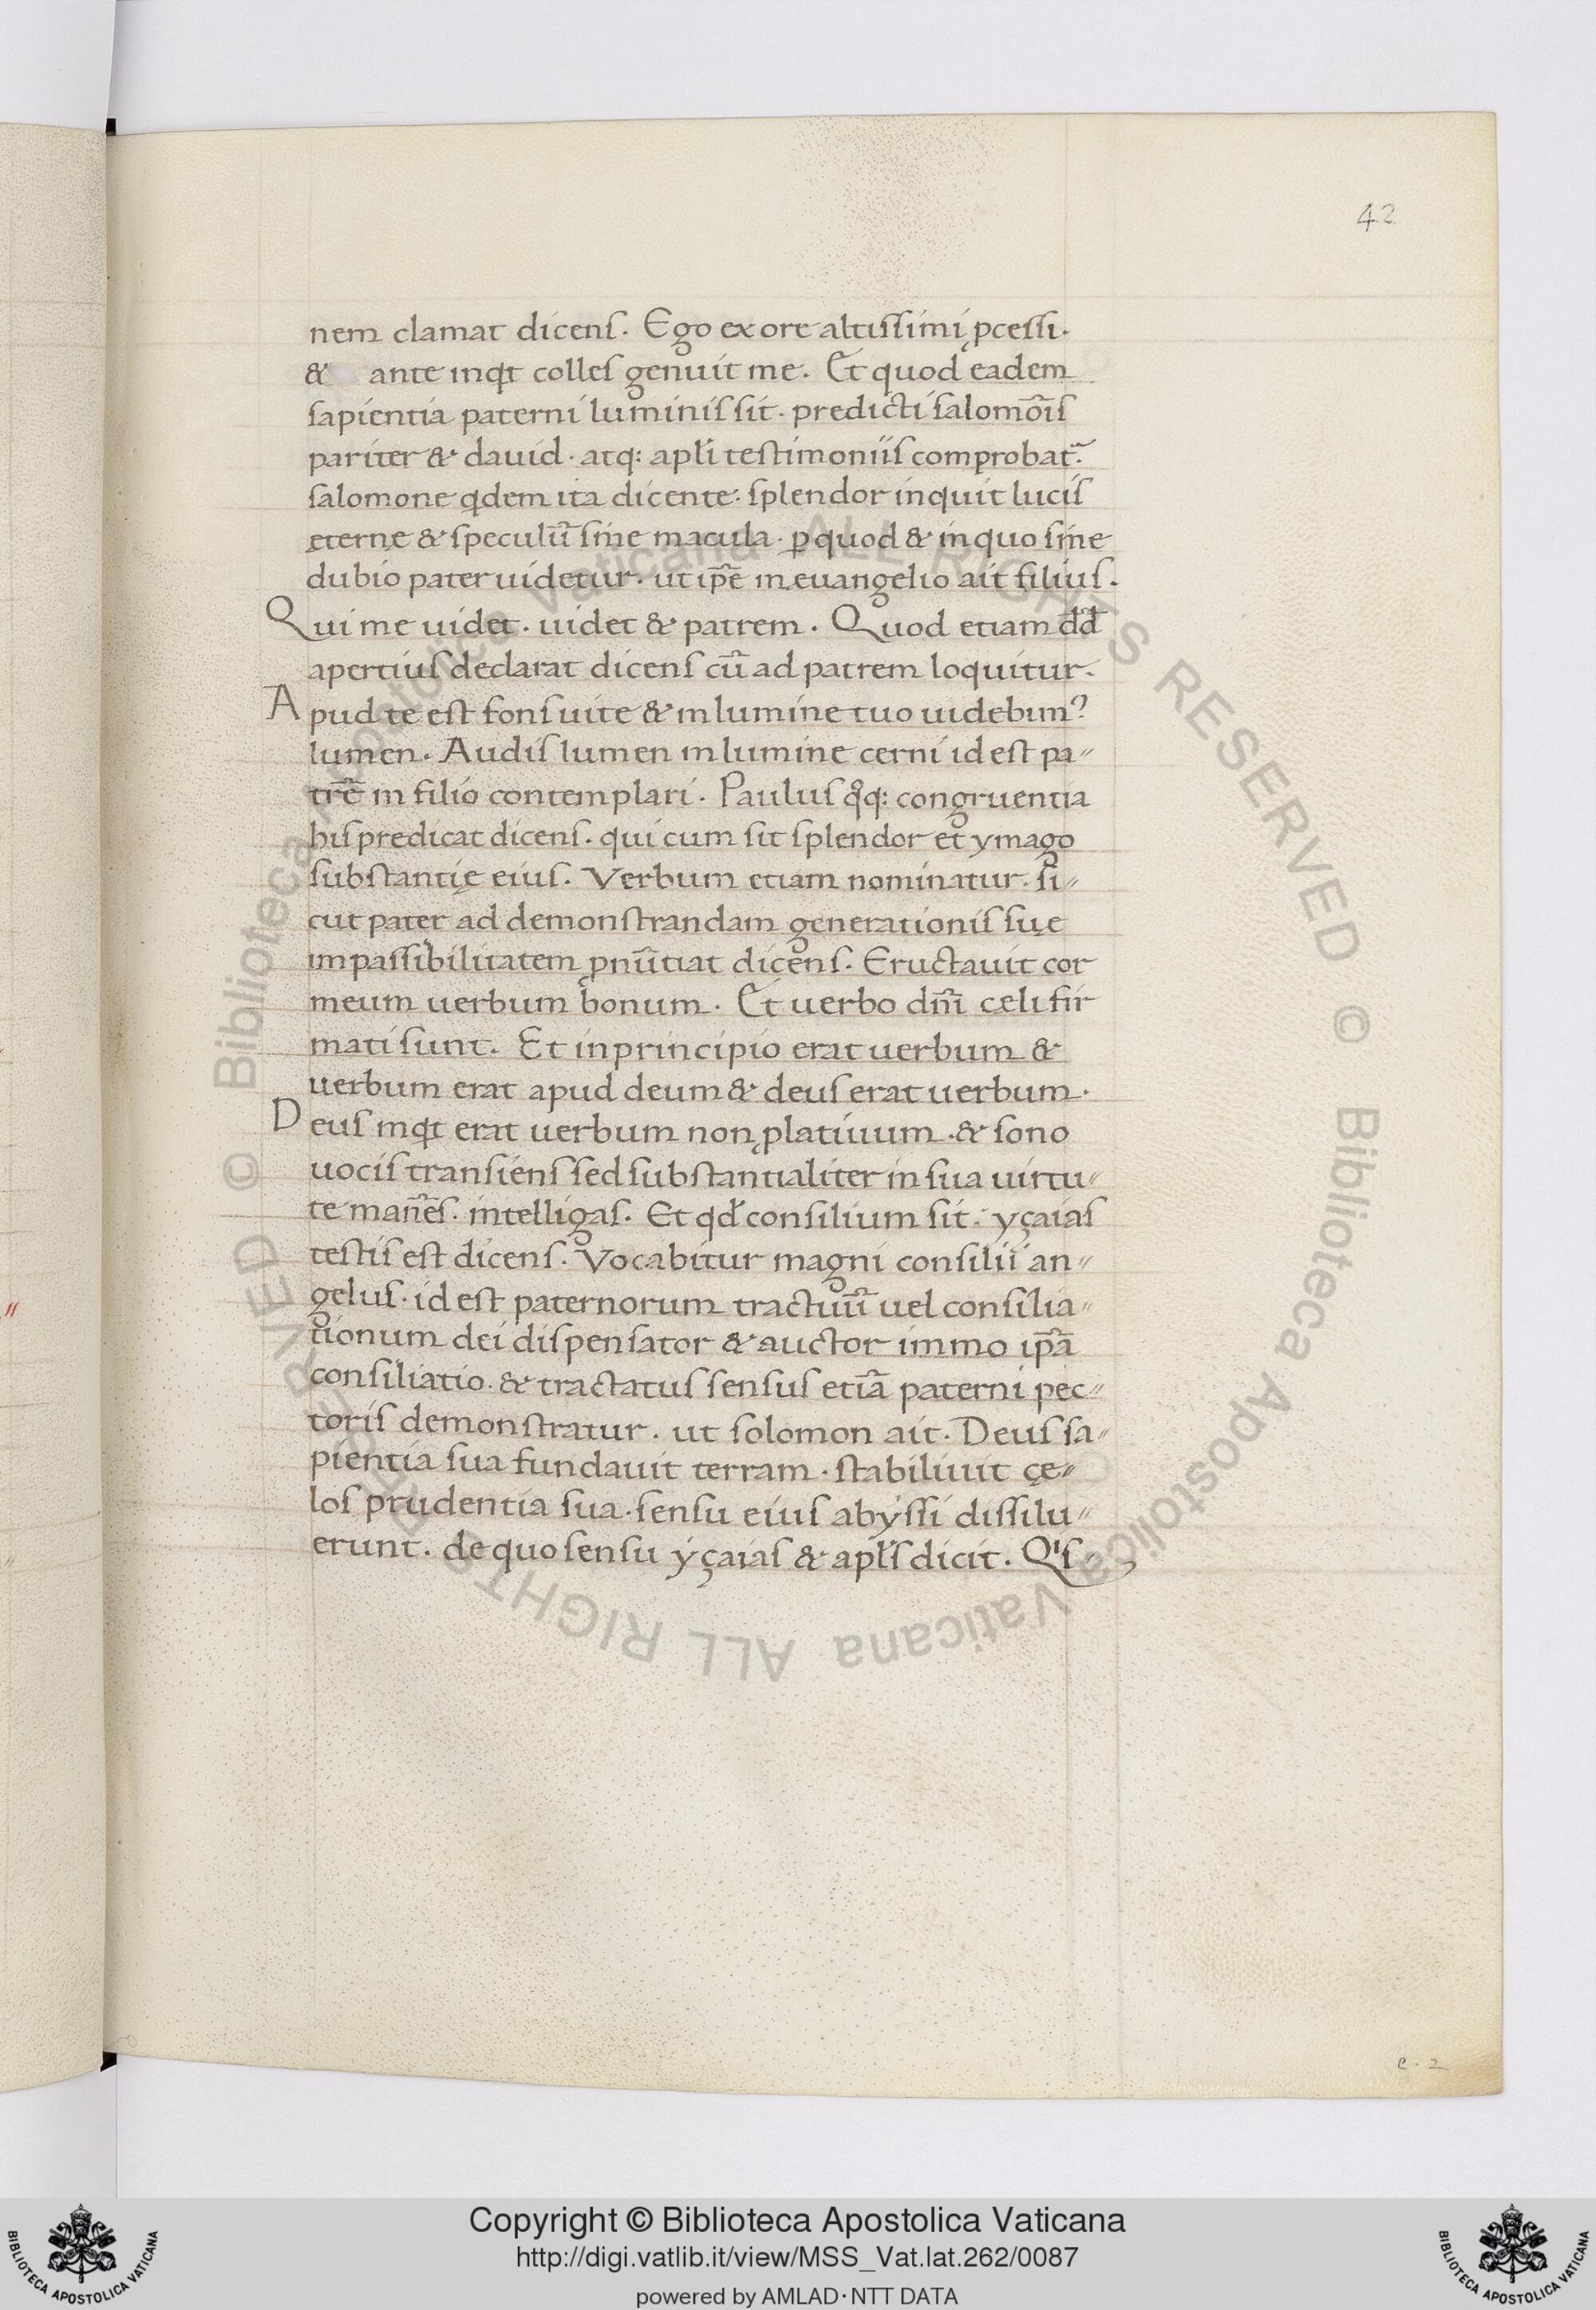 42
nem clamat dicenſ. Ego ex ore altiſſimi ꝓceſſi.
& ante inqt colleſ genuit me. Et quod eadem
ſapientia paterni luminiſ ſit. predicti ſalomōiſ
pariter & dauid. atq: apłi teſtimoniiſ comprobat̃.
ſalomone qdem ita dicente: ſplendor inquit luciſ
ęternę & ſpeculū ſine macula. ꝑ quod & in quo ſine
dubio pater uidetur. ut ip̄e in euangelio ait filiuſ.
Qui me uidet. uidet & patrem. Quod etiam dd̄
apertiuſ declarat dicenſ cū ad patrem loquitur.
Apud te eſt fonſ uite & in lumine tuo uidebim?
lumen. Audiſ lumen in lumine cerni id eſt pa〃
trē in filio contemplari. Pauluſ qͦq: congruentia
hiſ predicat dicenſ. qui cum ſit ſplendor et ymago
ſubſtantię eiuſ. Verbum etiam nominatur. ſi〃
cut pater ad demonſtrandam generationiſ ſuę
impaſſibilitatem ꝓnūtiat dicenſ. Eructauit cor
meum uerbum bonum. Et uerbo dnī cęli fir
mati ſunt. Et in principio erat uerbum &
uerbum erat apud deum & deuſ erat uerbum.
Deuſ inqt erat uerbum non ꝓlatiuum. & ſono
uociſ tranſienſ ſed ſubſtantialiter in ſua uirtu〃
te man̄eſ. intelligaſ. Et qđ conſilium ſit: yçaiaſ
teſtiſ eſt dicenſ. Vocabitur magni conſilii an〃
geluſ. id eſt paternorum tractuū uel conſilia〃
tionum dei diſpenſator & auctor immo ip̄a
conſiliatio. & tractatuſ ſenſuſ etiā paterni pec〃
toriſ demonſtratur. ut ſolomon ait. Deuſ ſa〃
pientia ſua fundauit terram. ſtabiliuit çę〃
loſ prudentia ſua. ſenſu eiuſ abyſſi diſſilu〃
erunt. de quo ſenſu yçaiaſ & apłſ dicit. Qͥſ
e. 2
Copyright © Biblioteca Apostolica Vaticana
http://digi.vatlib.it/view/MSS_Vat.lat.262/0087
powered by AMLAD·NTT DATA
BIBLIOTECA APOSTOLICA VATICANA
BIBLIOTECA APOSTOLICA VATICANA
© Biblioteca Apostolica Vaticana ALL RIGHTS RESERVED
© Biblioteca Apostolica Vaticana ALL RIGHTS RESERVED